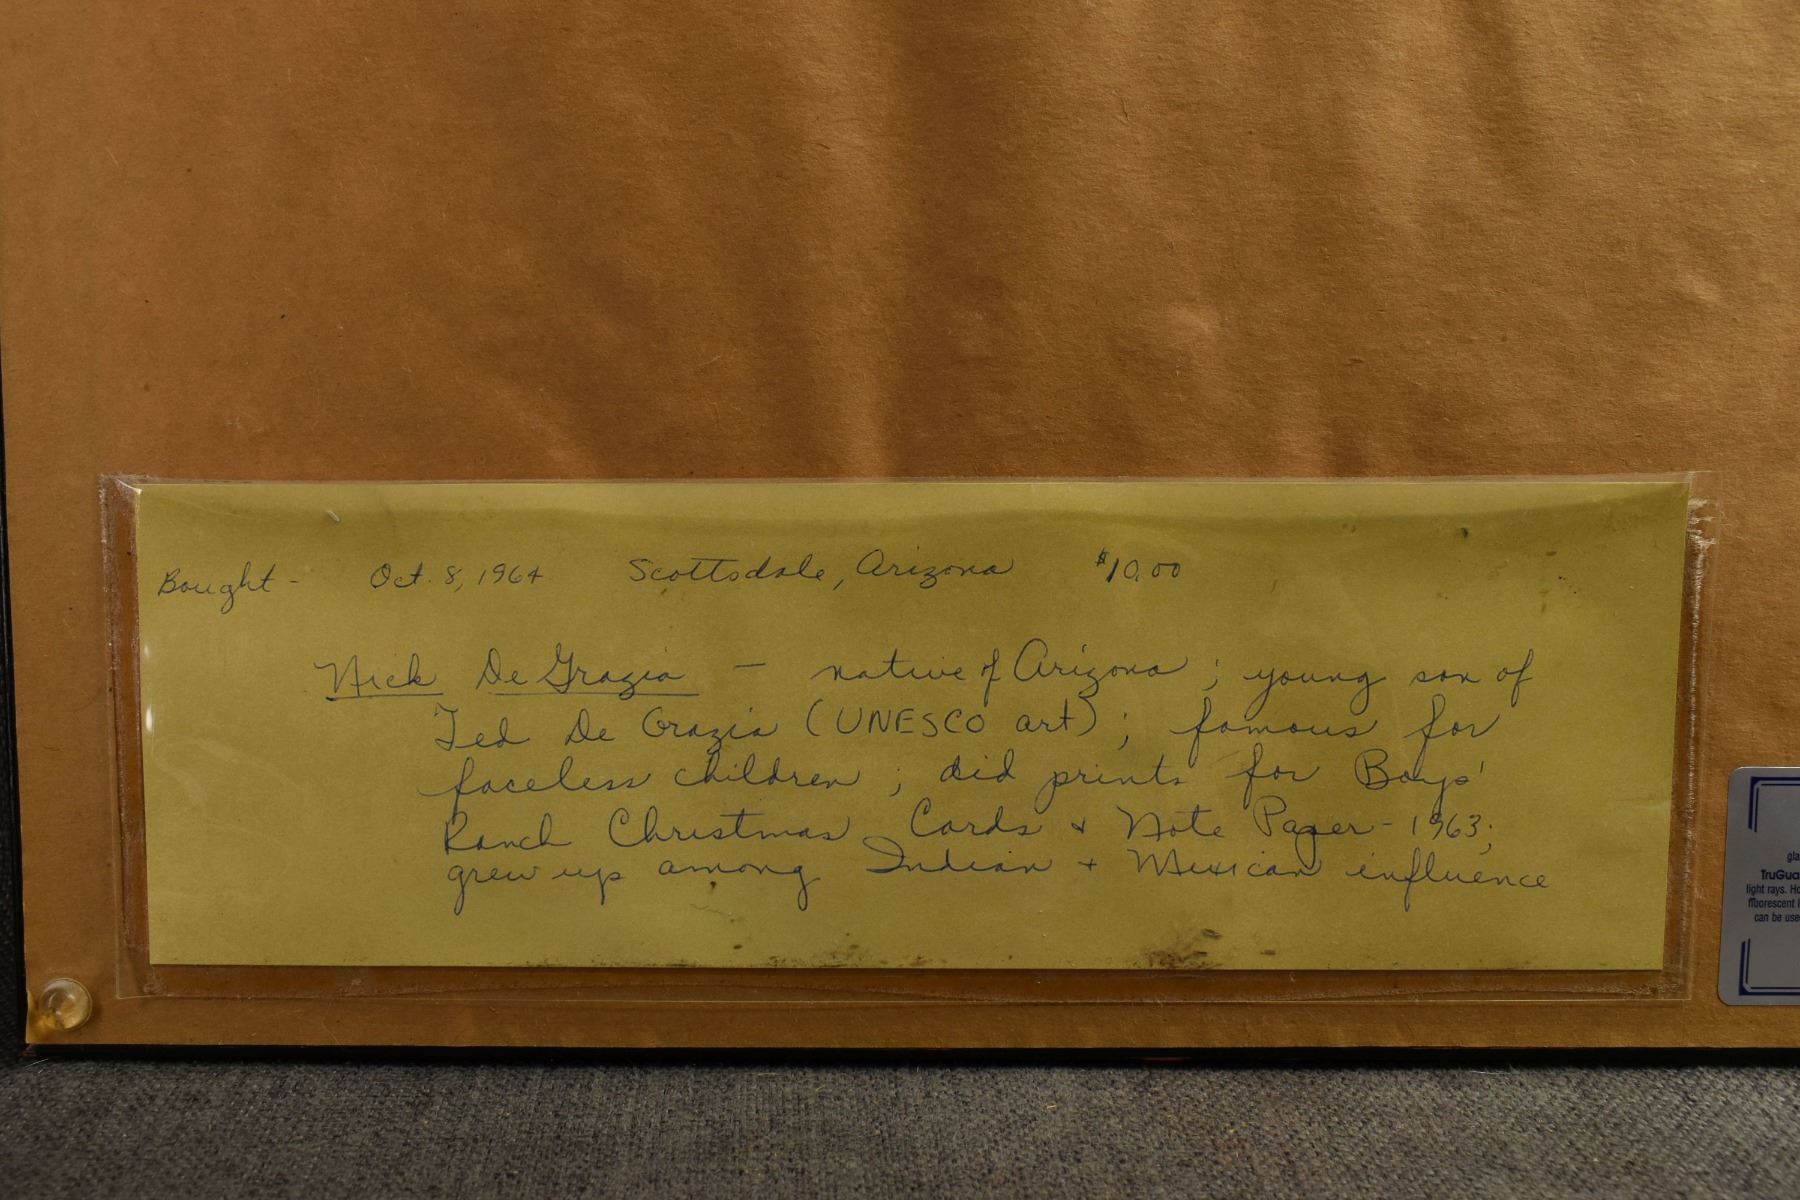 Bought - Oct. 8, 1964 Scottsdale, Arizona $10.00
Nick De Grazia — native of Arizona ; young son of
Ted De Grazia (UNESCO art) ; famous for
faceless children ; did prints for Boys'
Ranch Christmas Cards + Note Paper - 1963;
grew up among Indian + Mexican influence
TruGua
light rays. Ho
fluorescent l
can be use